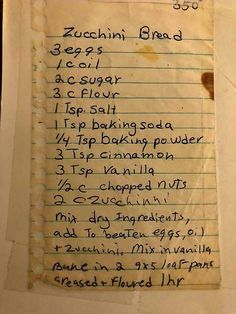 350°
Zucchini Bread
3 eggs
1 c oil
2 c sugar
3 c flour
1 Tsp. salt
1 Tsp baking soda
1/4 Tsp baking powder
3 Tsp cinnamon
3 Tsp vanilla
1/2 c chopped nuts
2 c Zucchinni
mix dry Ingredients,
add to beaten eggs, oil
+ zucchini, mix in vanilla
Bake in 2 9x5 loaf pans
greased + Floured 1 hr